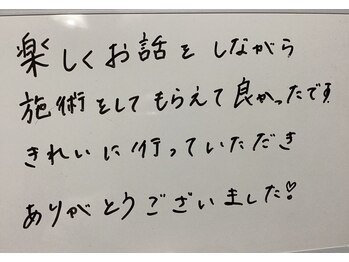 楽しくお話をしながら
施術をしてもらえて良かったです
きれいに行っていただき
ありがとうございました!